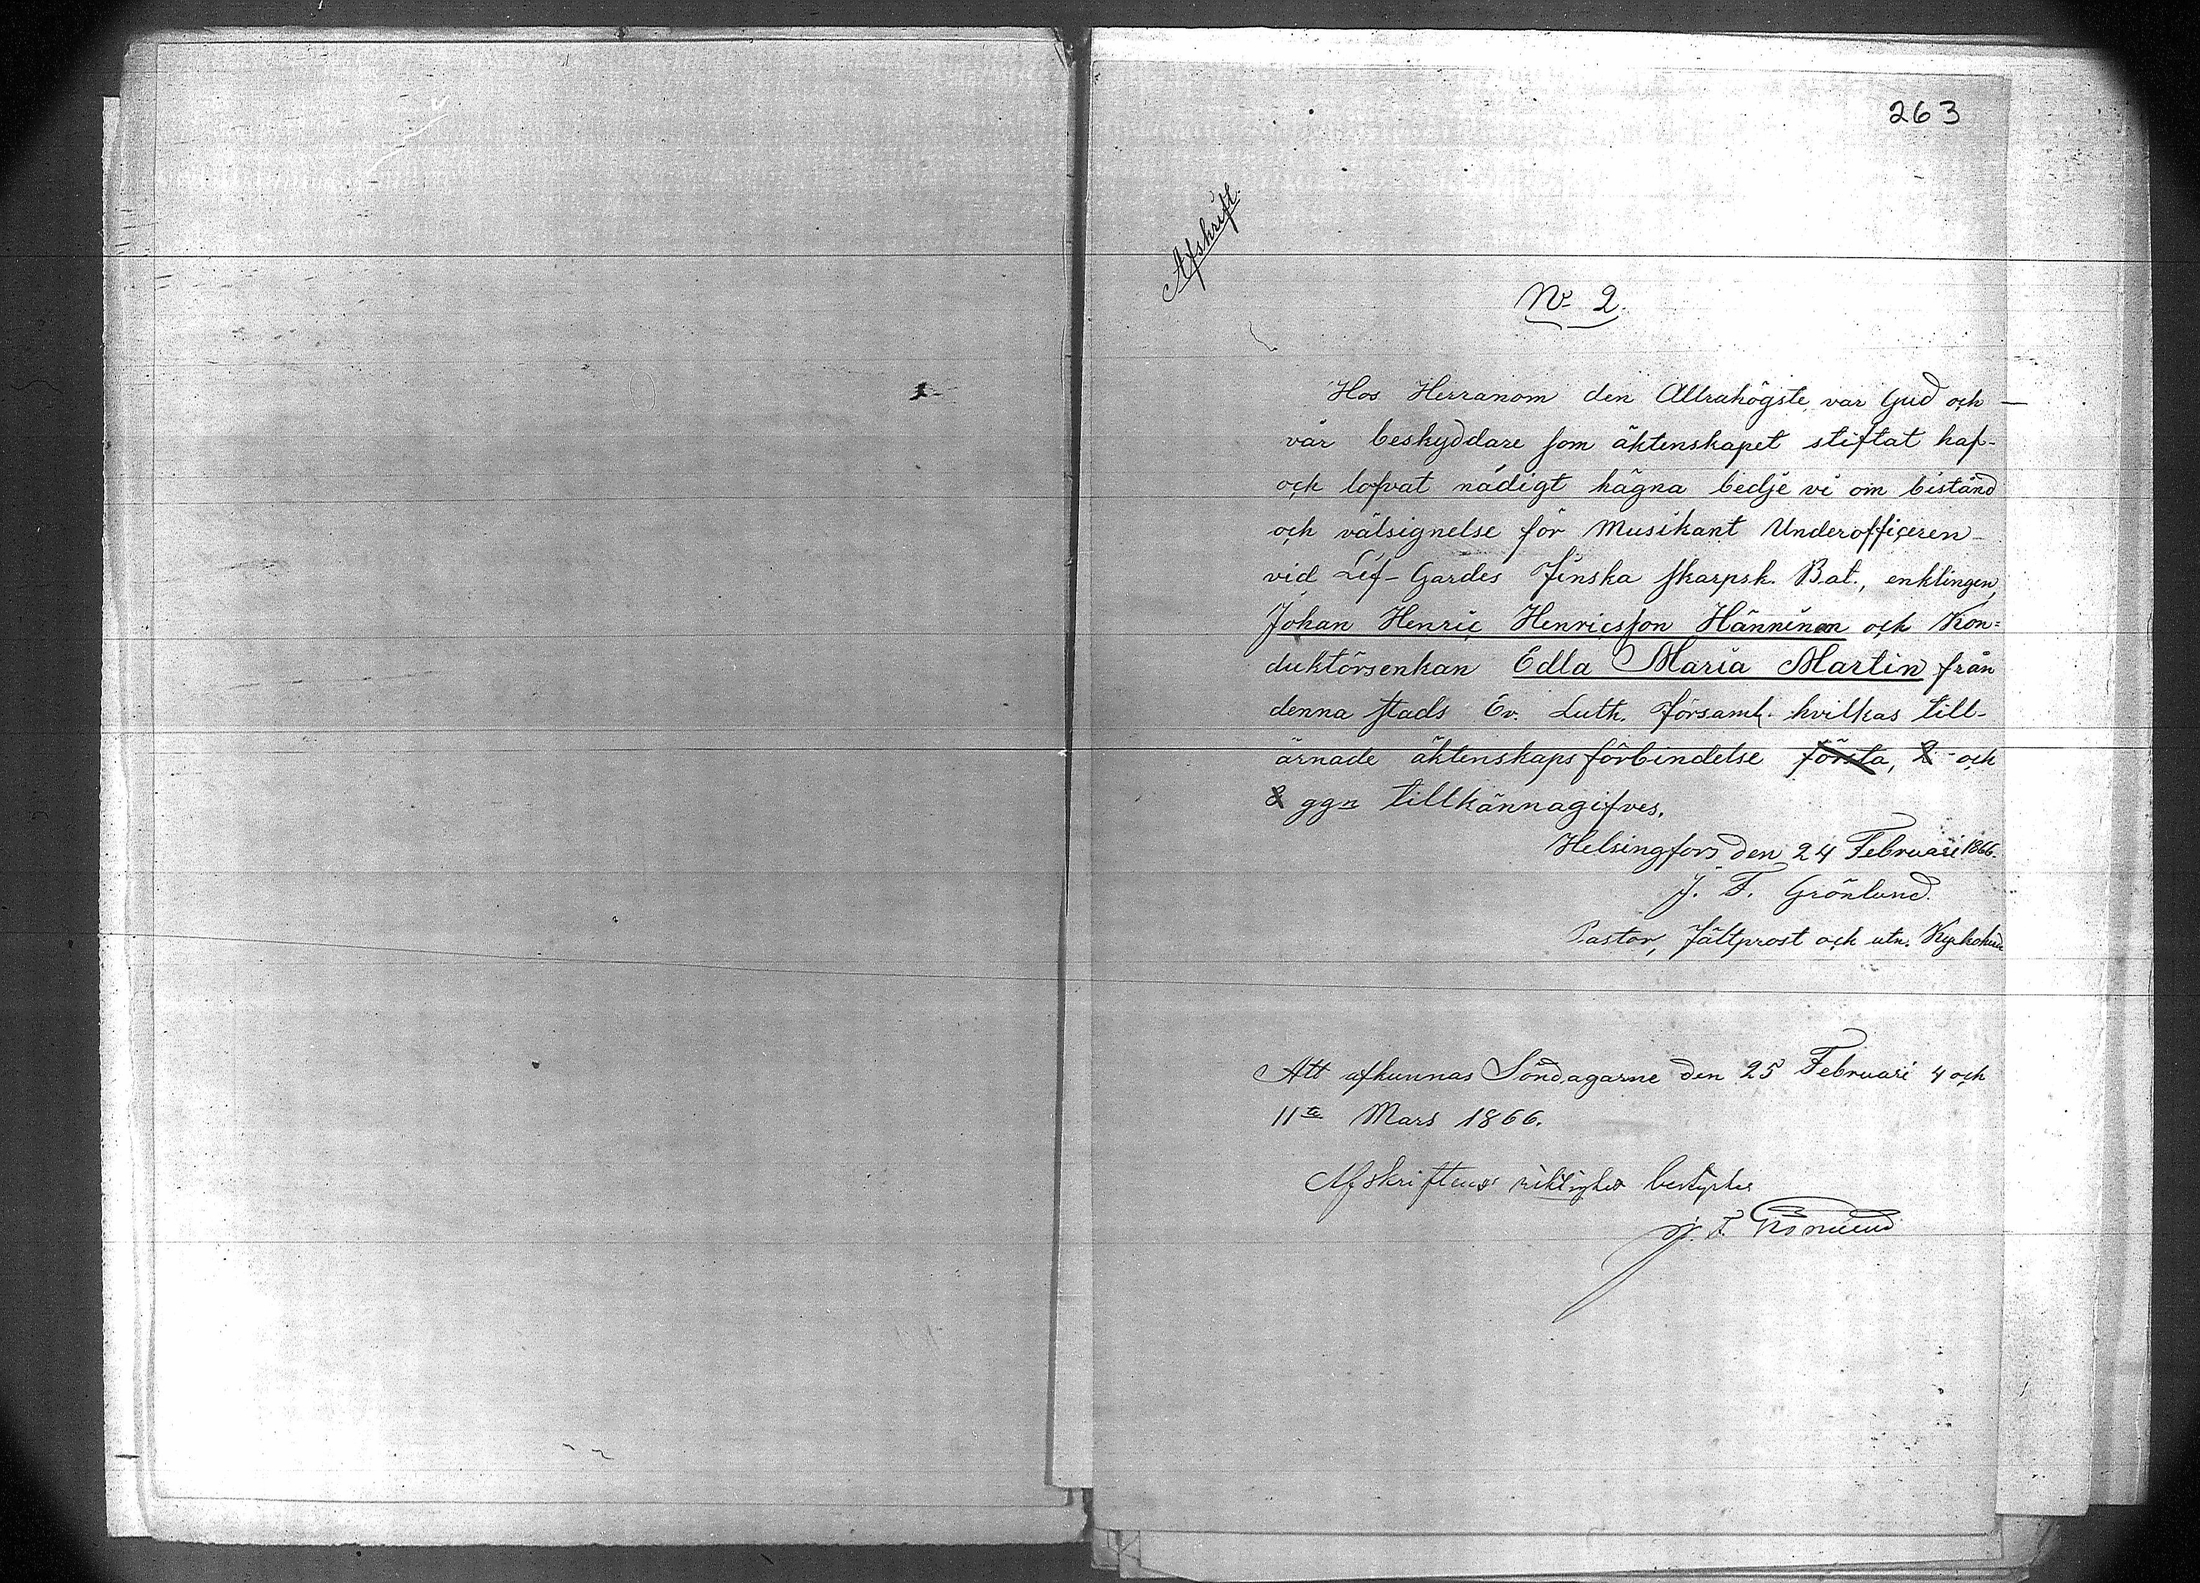 263
Afskrift.
No 2.
Hos Herranom den Allrahögste, var Gud och
vår beskyddare som äktenskapet stiftat haf-
och lofvat nådigt hägna bedje vi om bistånd
och välsignelse för Musikant Underofficeren
vid Lif-Gardes Finska Skarpsk. Bat., enklingen,
Johan Henric Henricsson Hänninen och Kon=
duktörsenkan Edla Maria Martin från
denna stads Ev. Luth. Församl. hvilkas till-
ärnade äktenskapsförbindelse första, 2 och
3 ggn tillkännagifves.
Helsingfors den 24 Februari 1866.
J. F. Grönlund.
Pastor, Fältprost och utn. Kyrkoherde
Att afkunnas Söndagarne den 25 Februari 4 och
11te Mars 1866.
Afskriftens riktighet bestyrker
J. F. Grönlund